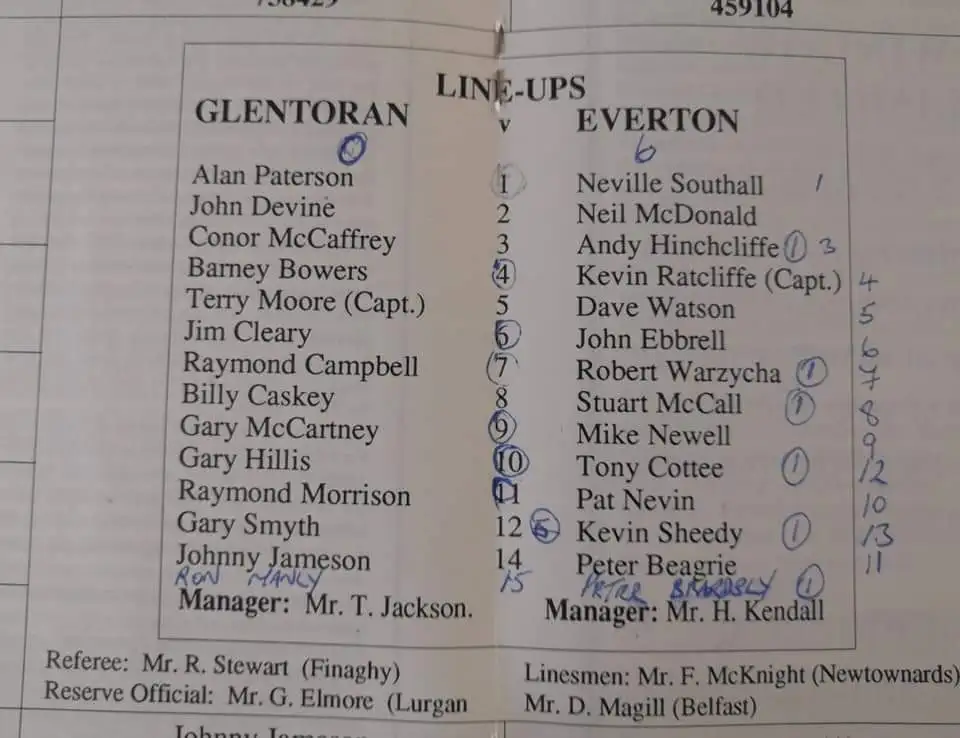 738429 459104
LINE-UPS
GLENTORAN v EVERTON
0 6
Alan Paterson 1 Neville Southall 1
John Devine 2 Neil McDonald
Conor McCaffrey 3 Andy Hinchcliffe 1 3
Barney Bowers 4 Kevin Ratcliffe (Capt.) 4
Terry Moore (Capt.) 5 Dave Watson 5
Jim Cleary 6 John Ebbrell 6
Raymond Campbell 7 Robert Warzycha 1 7
Billy Caskey 8 Stuart McCall 1 8
Gary McCartney 9 Mike Newell 9
Gary Hillis 10 Tony Cottee 1 12
Raymond Morrison 11 Pat Nevin 10
Gary Smyth 12 5 Kevin Sheedy 1 13
Johnny Jameson 14 Peter Beagrie 11
RON MANLY 15 PETER BEARDSLY 1
Manager: Mr. T. Jackson. Manager: Mr. H. Kendall
Referee: Mr. R. Stewart (Finaghy) Linesmen: Mr. F. McKnight (Newtownards)
Reserve Official: Mr. G. Elmore (Lurgan Mr. D. Magill (Belfast)
Johnny Jameson